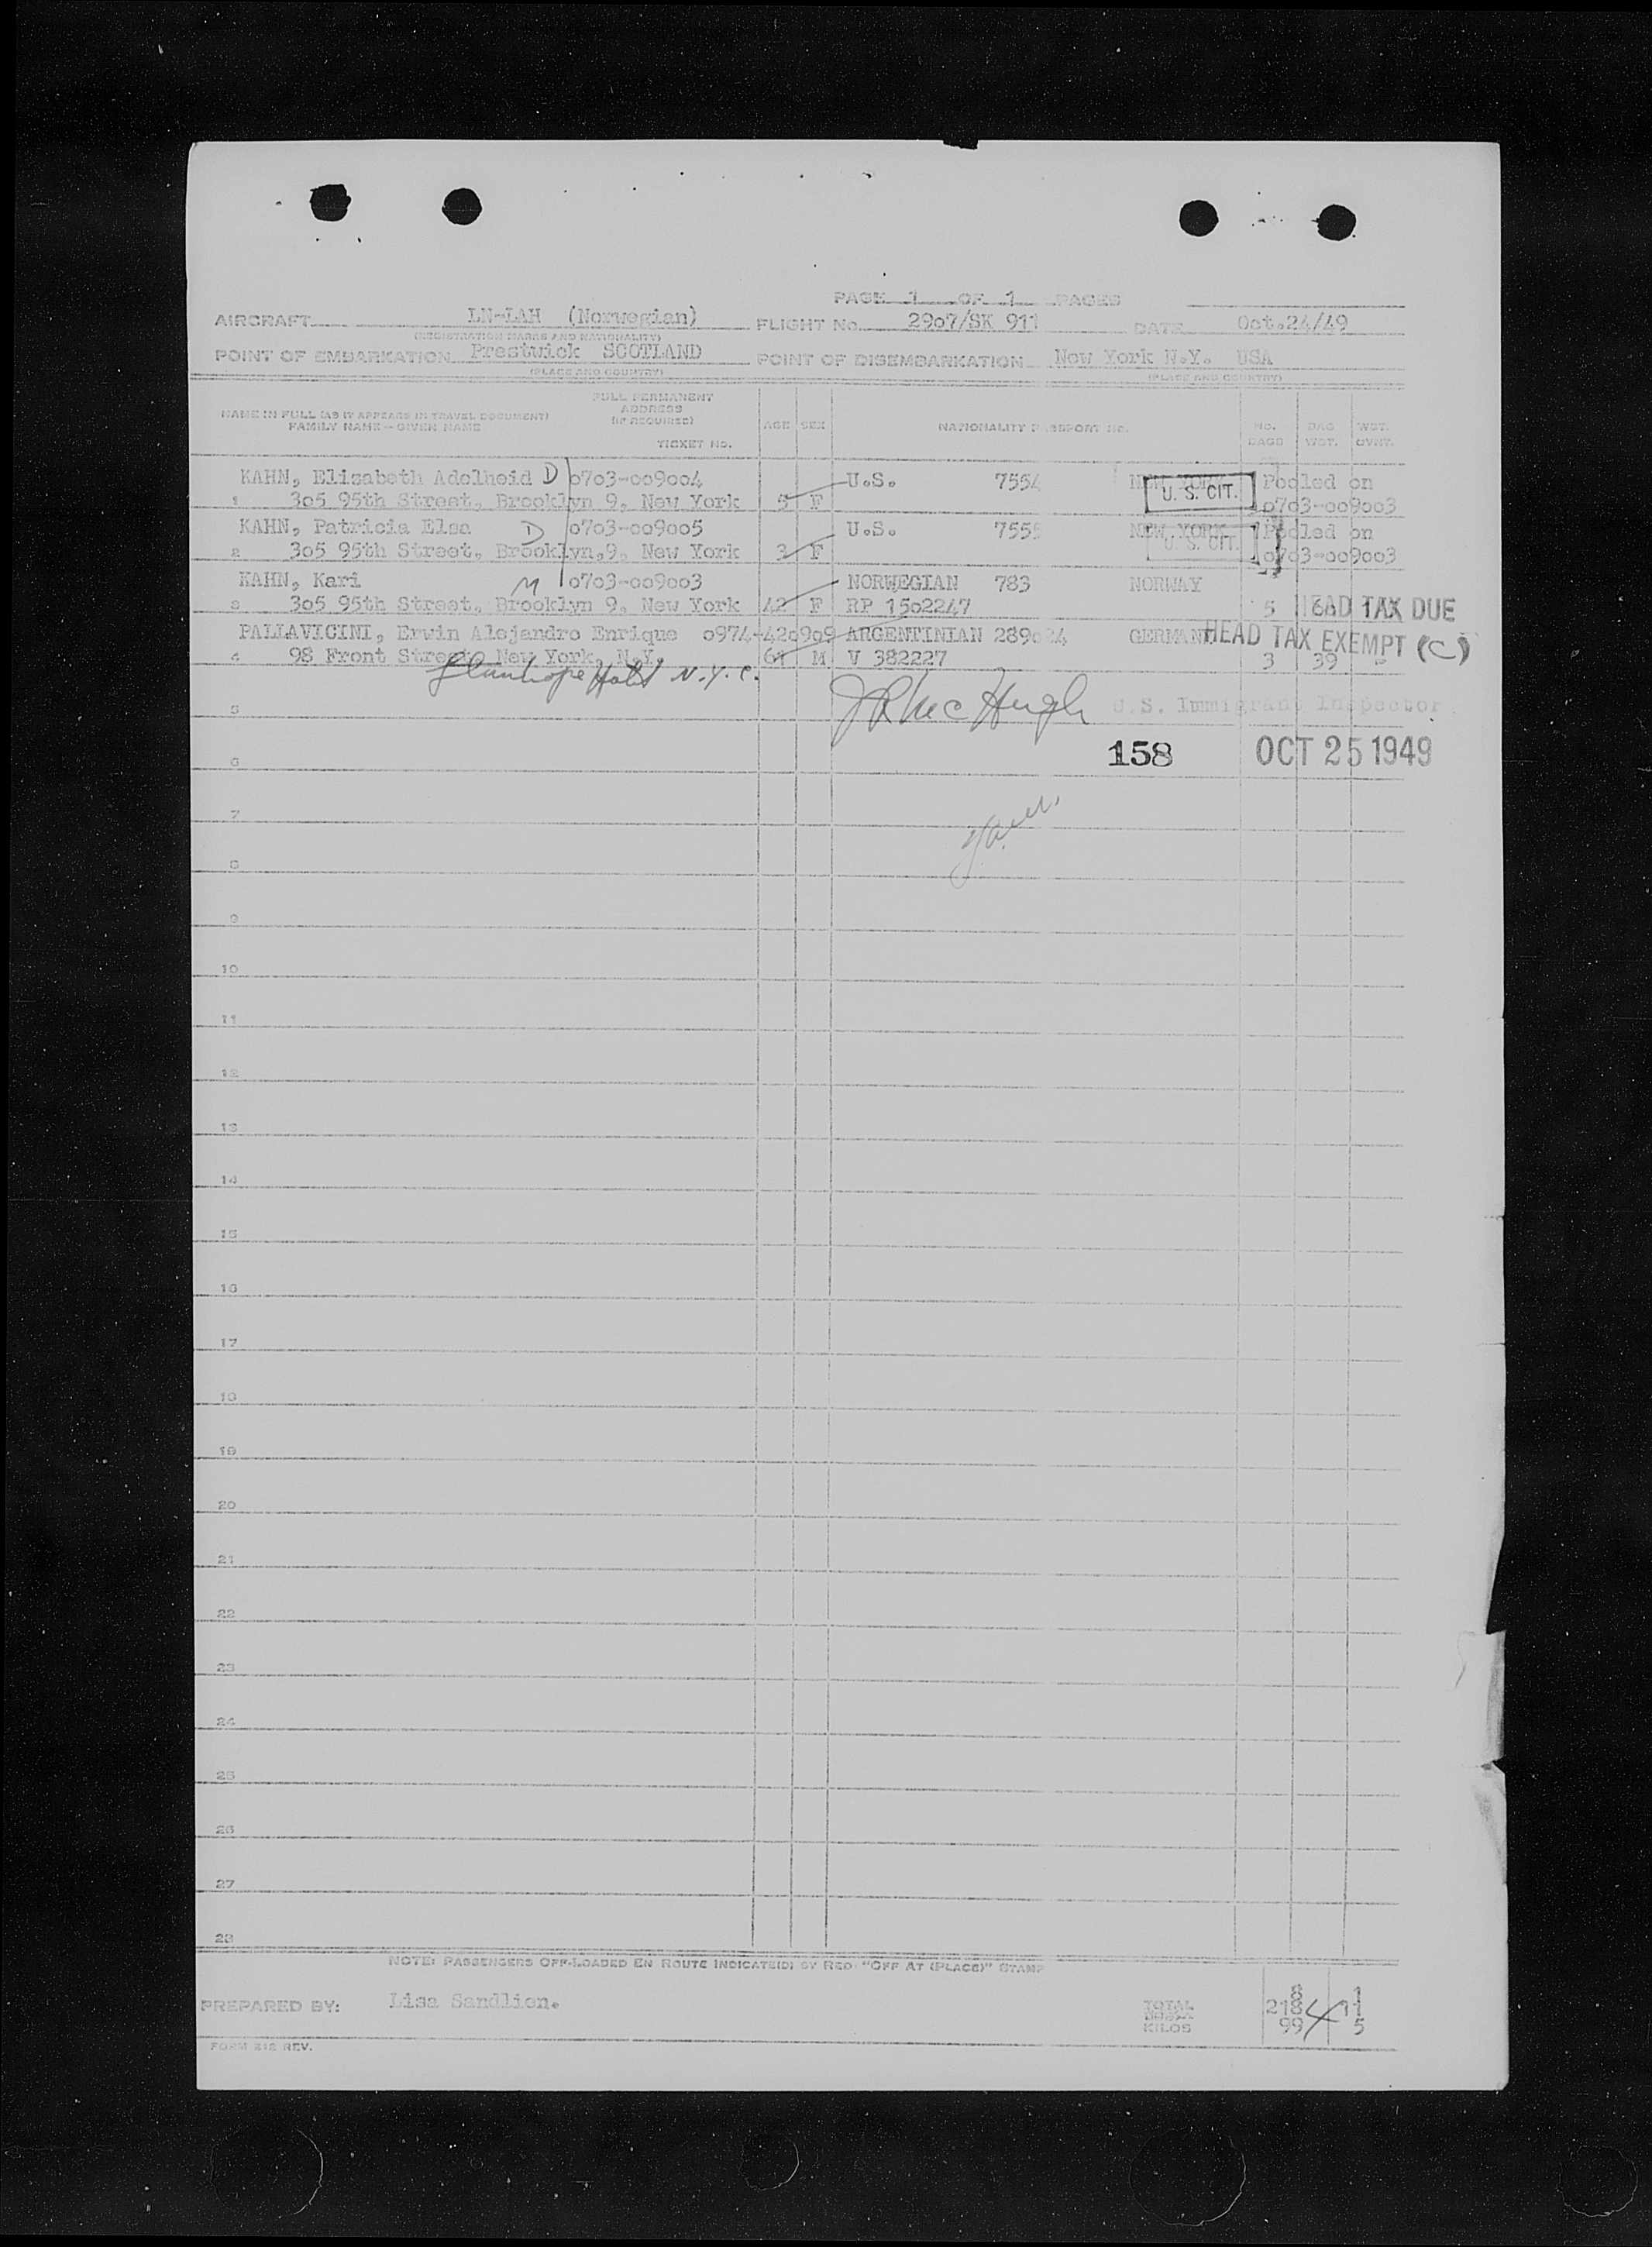 PAGE 1 OF 1 PAGES
AIRCRAFT LN-LAH (Norwegian) FLIGHT No. 2907/SK 911 DATE Oct.24/49
(REGISTRATION MARKS AND NATIONALITY)
POINT OF EMBARKATION Prestwick SCOTLAND POINT OF DISEMBARKATION New York N.Y. USA
(PLACE AND COUNTRY) (PLACE AND COUNTRY)
NAME IN FULL (AS IT APPEARS IN TRAVEL DOCUMENT)
FAMILY NAME - GIVEN NAME
FULL PERMANENT
ADDRESS
(IF REQUIRED)
TICKET No.
AGE SEX NATIONALITY PASSPORT No.
NO. BAGS
BAG WGT.
KAHN, Elisabeth Adelheid D 0703-009004 U.S. 7554 NEW YORK U. S. CIT. Pooled on
1 305 95th Street, Brooklyn 9, New York 5 F 0703-009003
KAHN, Patricia Elsa D 0703-009005 U.S. 7555 NEW YORK U. S. CIT. Pooled on
2 305 95th Street, Brooklyn,9, New York 3 F 0703-009003
KAHN, Kari M 0703-009003 NORWEGIAN 783 NORWAY
3 305 95th Street, Brooklyn 9, New York 42 F RP 1502247 5 HEAD TAX DUE
PALLAVICINI, Erwin Alejandro Enrique 0974-420909 ARGENTINIAN 289024 GERMANY HEAD TAX EXEMPT (C)
4 98 Front Street, New York, N.Y. 61 M V 382227 3 39
Stanhope Hotel N.Y.C.
5 J R McHugh U.S. Immigrant Inspector
6 158 OCT 25 1949
7
8
9
10
11
12
13
14
15
16
17
18
19
20
21
22
23
24
25
26
27
28
NOTE: PASSENGERS OFF-LOADED EN ROUTE INDICATE(D) BY RED "OFF AT (PLACE)" STAMP
PREPARED BY: Lisa Sandlien.
TOTAL 8 1
218 4 11
KILOS 99 5
FORM 212 REV.